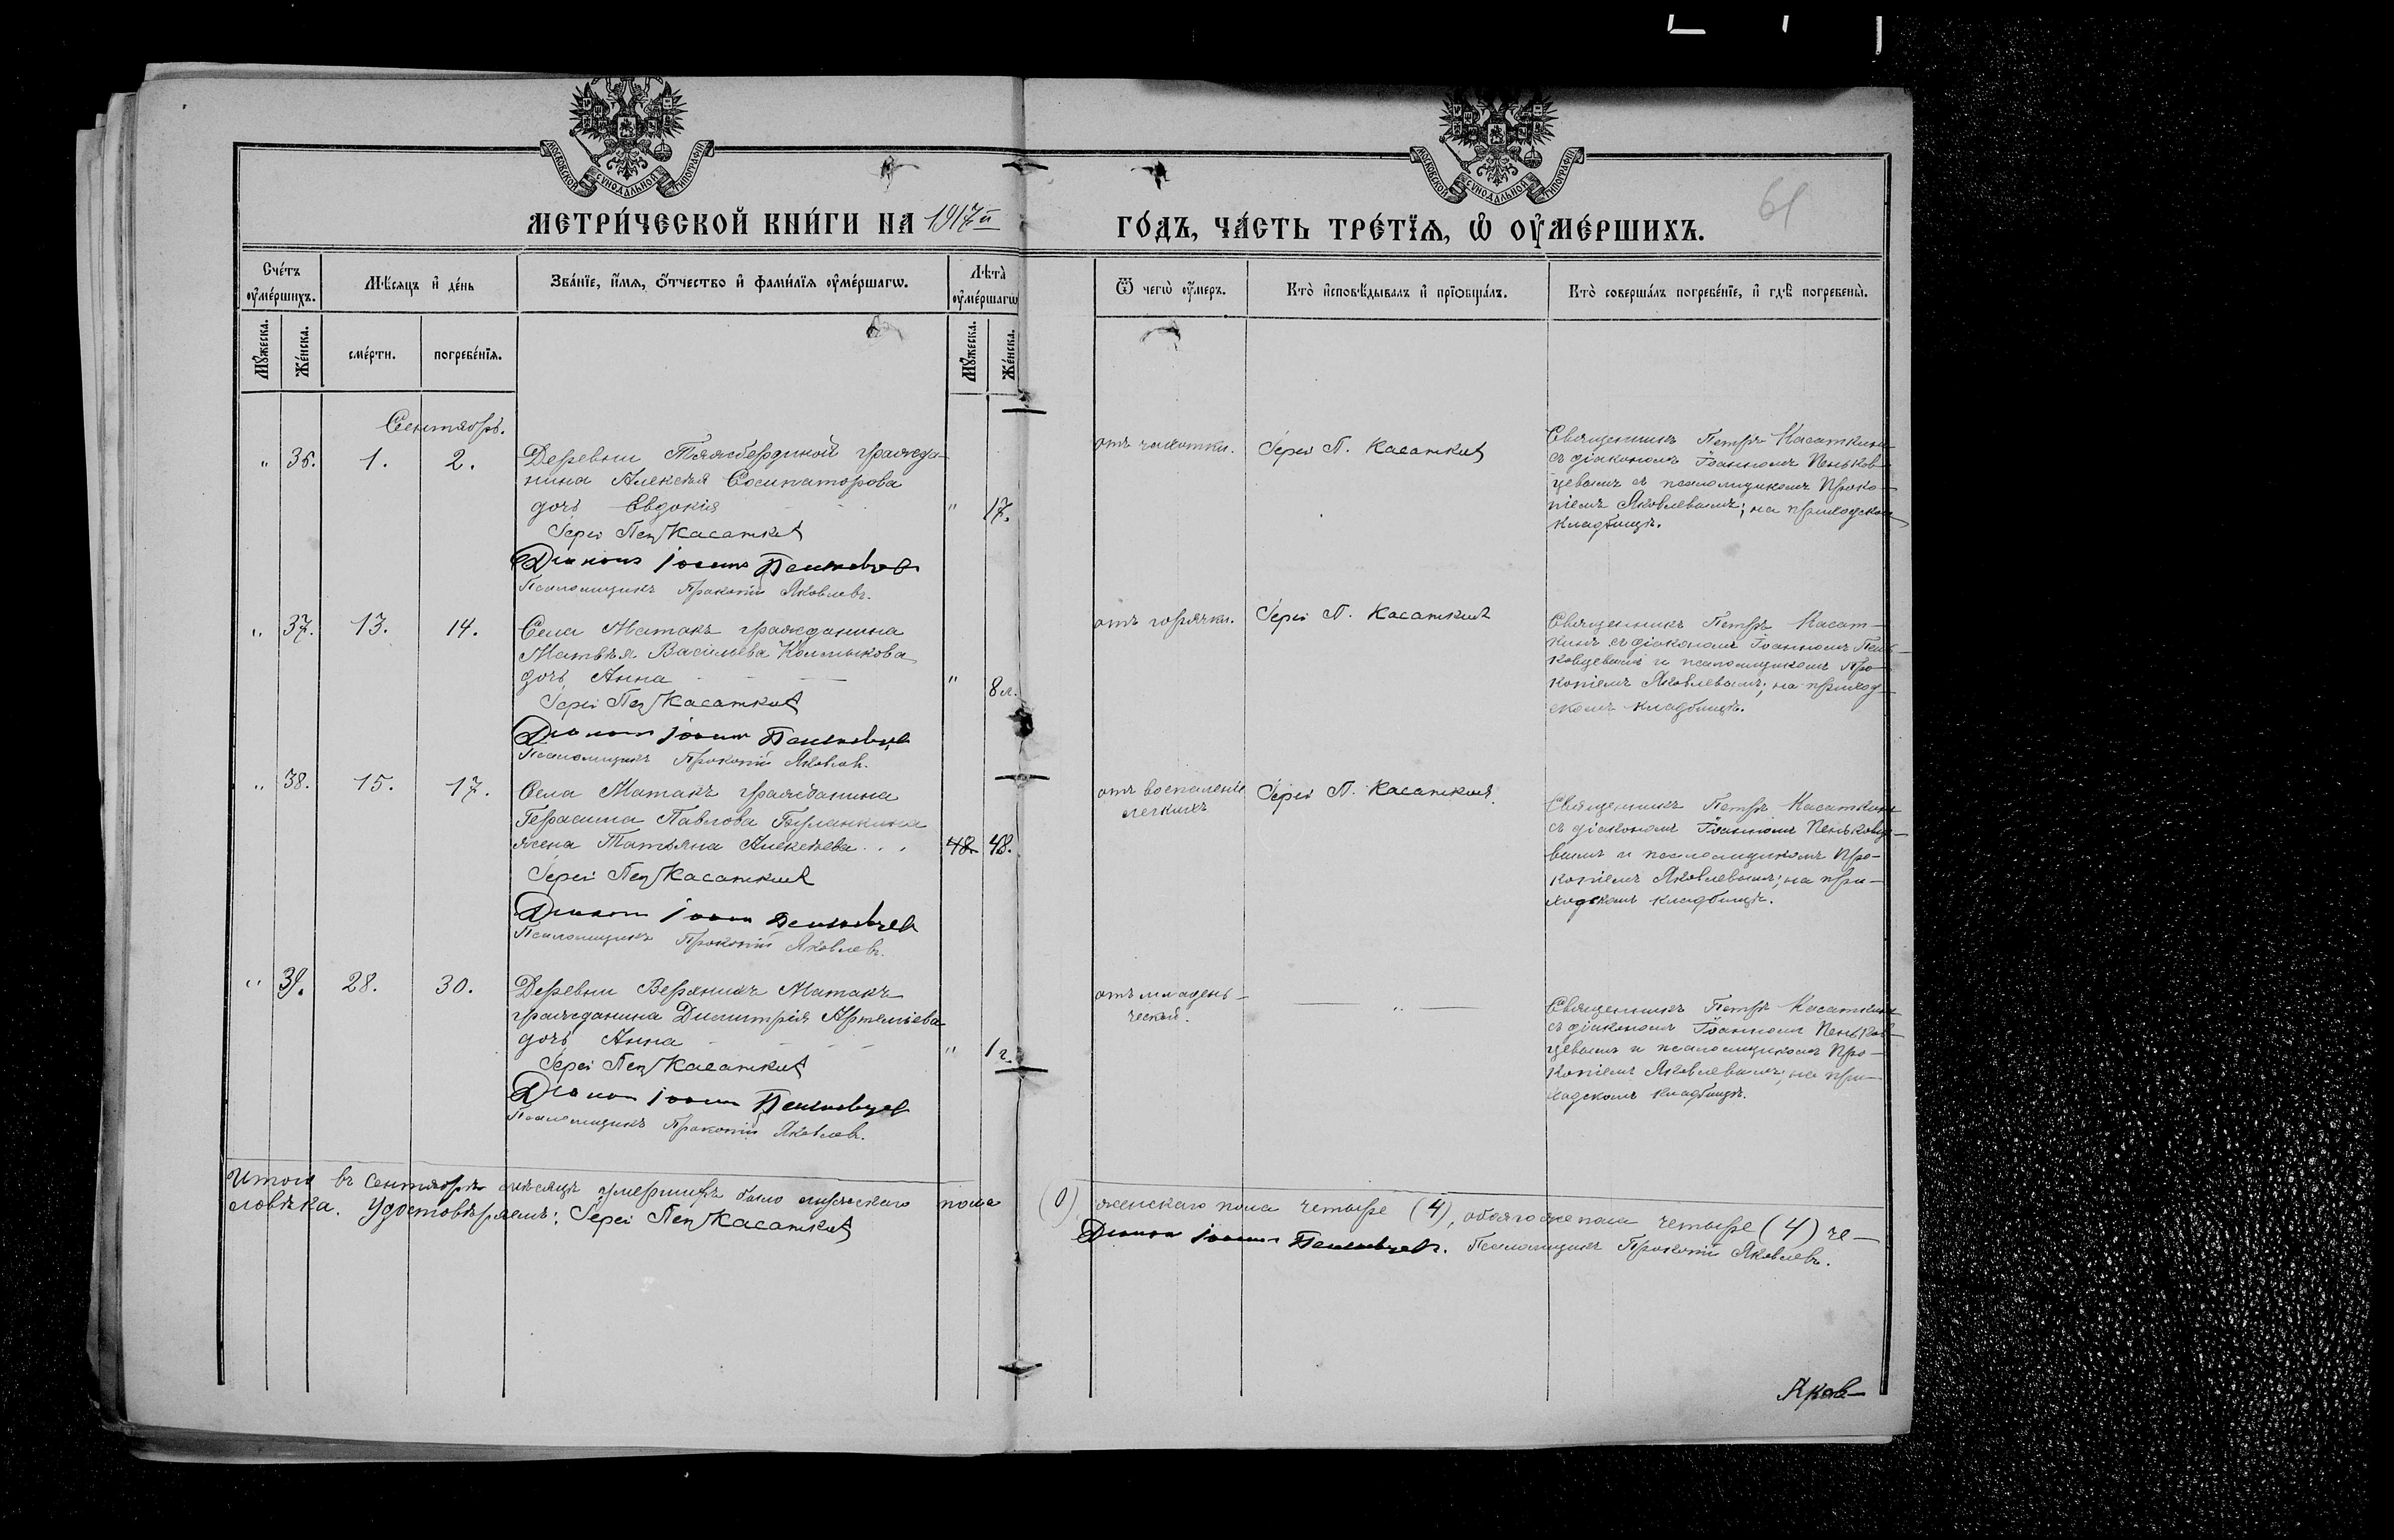 МОСКОВСКОЙ СУНОДАЛЬНОЙ ТИПОГРАФІИ
МОСКОВСКОЙ СУНОДАЛЬНОЙ ТИПОГРАФІИ
61
МЕТРИ́ЧЕСКОЙ КНИ́ГИ НА 1917й ГО́ДЪ, ЧА́СТЬ ТРЕ́ТЇѦ, Ѡ҆ ОУ҆МЕ́РШИХЪ.
Сче́тъ оу҆ме́ршихъ.
Мѣ́сяцъ и҆ де́нь
Зва́нїе, и҆́мя, ѻ҆́тчество и҆ фами́лїя оу҆ме́ршагѡ.
Лѣ́та оу҆ме́ршагѡ
Ѿ чегѡ̀ оу҆́меръ.
Кто̀ и҆сповѣ́дывалъ и҆ прїѡбща́лъ.
Кто̀ соверша́лъ погребе́нїе, и҆ гдѣ̀ погребены̀.
Мꙋ́жеска.
Же́нска.
сме́рти.
погребе́нїя.
Мꙋ́жеска.
Же́нска.
Сентябрь.
" 36. 1. 2.
Деревни Тяжбердиной гражда-
нина Алексѣя Сосипаторова
дочь Евдокія " 17.
Іерей Пет Касаткин
Диаконъ Іоаннъ Пеньковцев
Псаломщикъ Прокопій Яковлевъ.
отъ чахотки.
Іерей П. Касаткин
Священникъ Петръ Касаткинъ
съ діакономъ Іоанномъ Пеньков-
цевымъ и псаломщикомъ Проко-
піемъ Яковлевымъ; на приходском
кладбищѣ.
" 37. 13. 14.
Села Матакъ гражданина
Матвѣя Васильева Колмыкова
дочь Анна " 8 л.
Іерей Пет Касаткин
Диакон Іоанн Пеньковцев
Псаломщикъ Прокопій Яковлев.
отъ горячки.
Іерей П. Касаткин
Священникъ Петръ Касат-
кинъ съ діакономъ Іоанномъ Пень-
ковцевымъ и псаломщикомъ Про-
копіемъ Яковлевымъ; на приход-
скомъ кладбищѣ.
" 38. 15. 17.
Села Матакъ гражданина
Герасима Павлова Буланкина
жена Татьяна Алексѣева . . 48 48.
Іерей Пет Касаткин
Диакон Іоанн Пеньковцев
Псаломщикъ Прокопій Яковлевъ.
отъ воспаленія
легкихъ
Іерей П. Касаткин.
Священникъ Петръ Касаткинъ
съ діакономъ Іоанномъ Пеньковце-
вымъ и псаломщикомъ Про-
копіемъ Яковлевымъ; на при-
ходскомъ кладбищѣ.
" 39. 28. 30.
Деревни Верхнихъ Матакъ
гражданина Димитрія Артемьева
дочь Анна " 1 г.
Іерей Пет Касаткин
Диакон Іоанн Пеньковцев
Псаломщикъ Прокопій Яковлев.
отъ младен-
ческой.
— " —
Священникъ Петръ Касаткинъ
съ діакономъ Іоанномъ Пеньков-
цевымъ и псаломщикомъ Про-
копіемъ Яковлевымъ; на при-
ходскомъ кладбищѣ.
Итого въ Сентябрѣ мѣсяцѣ умершихъ было мужескаго пола (0), женскаго пола четыре (4), обоего же пола четыре (4) че-
ловѣка. Удостовѣряемъ: Іерей Пет Касаткин Диакон Іоаннъ Пеньковцевъ. Псаломщикъ Прокопій Яковлевъ.
Яков-